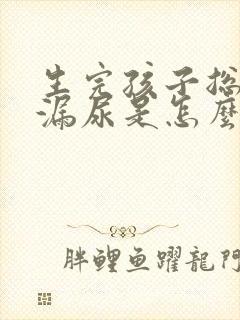 生完孩子总
漏尿是怎麼
胖鲤鱼躍龍門